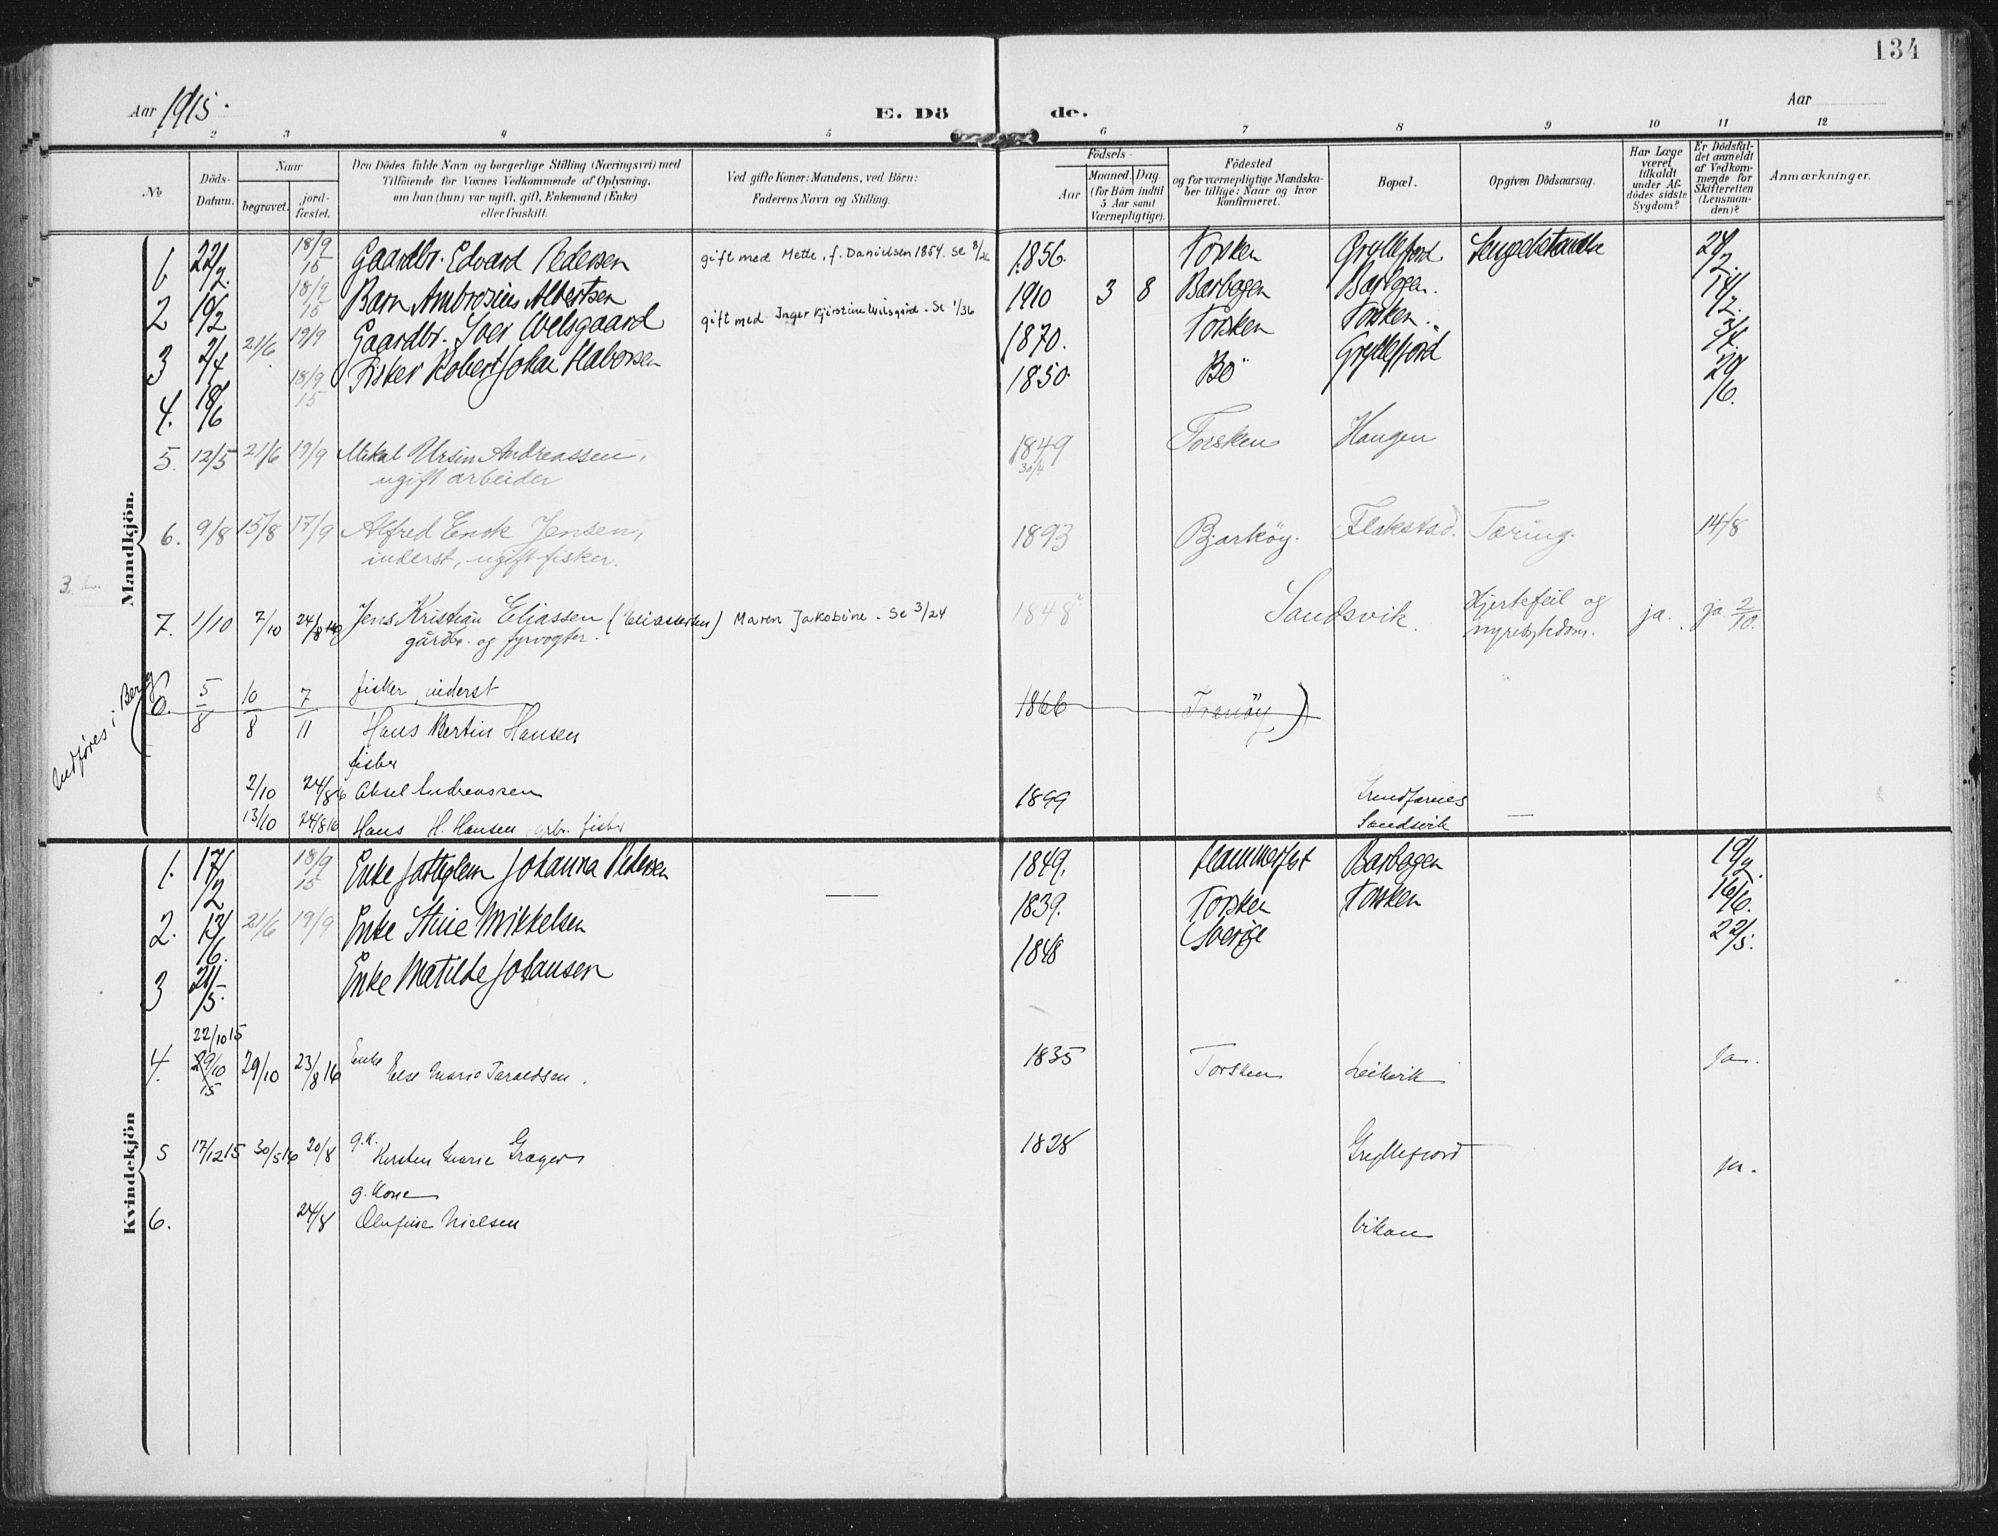 134
Aar 1915.
E. Dö
de.
Aar
1 2 3 4 5 6 7 8 9 10 11 12
No
Döds-
Datum.
Naar
begravet.
jord-
fæstet.
Den Dödes fulde Navn og borgerlige Stilling (Næringsvei) med
Tilföiende for Voxnes Vedkommende af Oplysning,
om han (hun) var ugift, gift, Enkemand (Enke)
eller fraskilt.
Ved gifte Koner: Mandens, ved Börn:
Faderens Navn og Stilling.
Födsels-
Aar
Maaned. Dag.
(for Börn indtil
5 Aar samt
Værnepligtige).
Födested
og for værnepligtige Mandska-
ber tillige: Naar og hvor
konfirmeret.
Bopæl.
Opgiven Dödsaarsag.
Har Læge
været
tilkaldt
under Af-
dödes sidste
Sygdom?
Er Dödsfal-
det anmeldt
af Vedkom-
mende for
Skifteretten
(Lensman-
den)?
Anmærkninger.
Mandkjön.
22/2. 18/9 15 Gaardbr. Edvard Pedersen gift med Mette, f. Danielsen 1854. Se 8/26 1856. Torsken Gryllefjord 24/2.
2 19/2 18/9 15 Barn Ambrosius Albertsen 1910 3 8 Barbogen Barbogen.
3 2/4 21/6. 19/9 Gaardbr. Iver Wilsgaard gift med Inger Kjerstine Wilsgård. Se 1/36 1870. Torsken Torsken.
4. 18/6 18/9 15 Fisker Robert Johan Halvorsen 1850. Bö Gryllefjord 29/6.
5. 12/5 21/6 19/9 Mikal Ursin Andreassen, 1849 Torsken Haugen
30/4
ugift arbeider
6. 9/8 15/8 17/9 Alfred Enok Jensen, 1893 Bjarköy. Flakstad. Tæring. 14/8
inderst, ugift fisker.
7. 1/10 7/10 24/8 Jens Kristian Eliassen Maren Jakobine. Se 3/24 1848 Sandsvik. Hjertefeil og ja. ja 2/10.
gårdbr. og fyrvogter. nyresykdom.
Indføres i Berg
5/8 10/8 7/11 fisker, inderst
Hans Bertin Hansen 1866 Tranöy)
fisker
2/10 24/8 16 Aksel Andreassen 1899
13/10 24/8 16 Hans H. Hansen arb. fisker Sandsvik —
Kvindekjön
1. 17/2 18/9 15 Enke Johanna Pedersen — 1849. Hammerfest Barbogen 19/2.
2. 13/6. 21/6 19/9 Enke Stine Mikkelsen 1839. Torsken Torsken 16/6.
3 21/5. Enke Matilde Johansen 1848 Sverige 22/5.
22/10 15
4. 29/10 15 29/10 23/8 16 Enke Else Marie Taraldsen. 1835 Torsken Leikvik Ja.
5 17/12 15 30/5 16 20/8 g.k. Kirsten Marie Grøger 1828 Gryllefjord ja.
g. Kone
6. 24/8 Olufine Nielsen Vikan